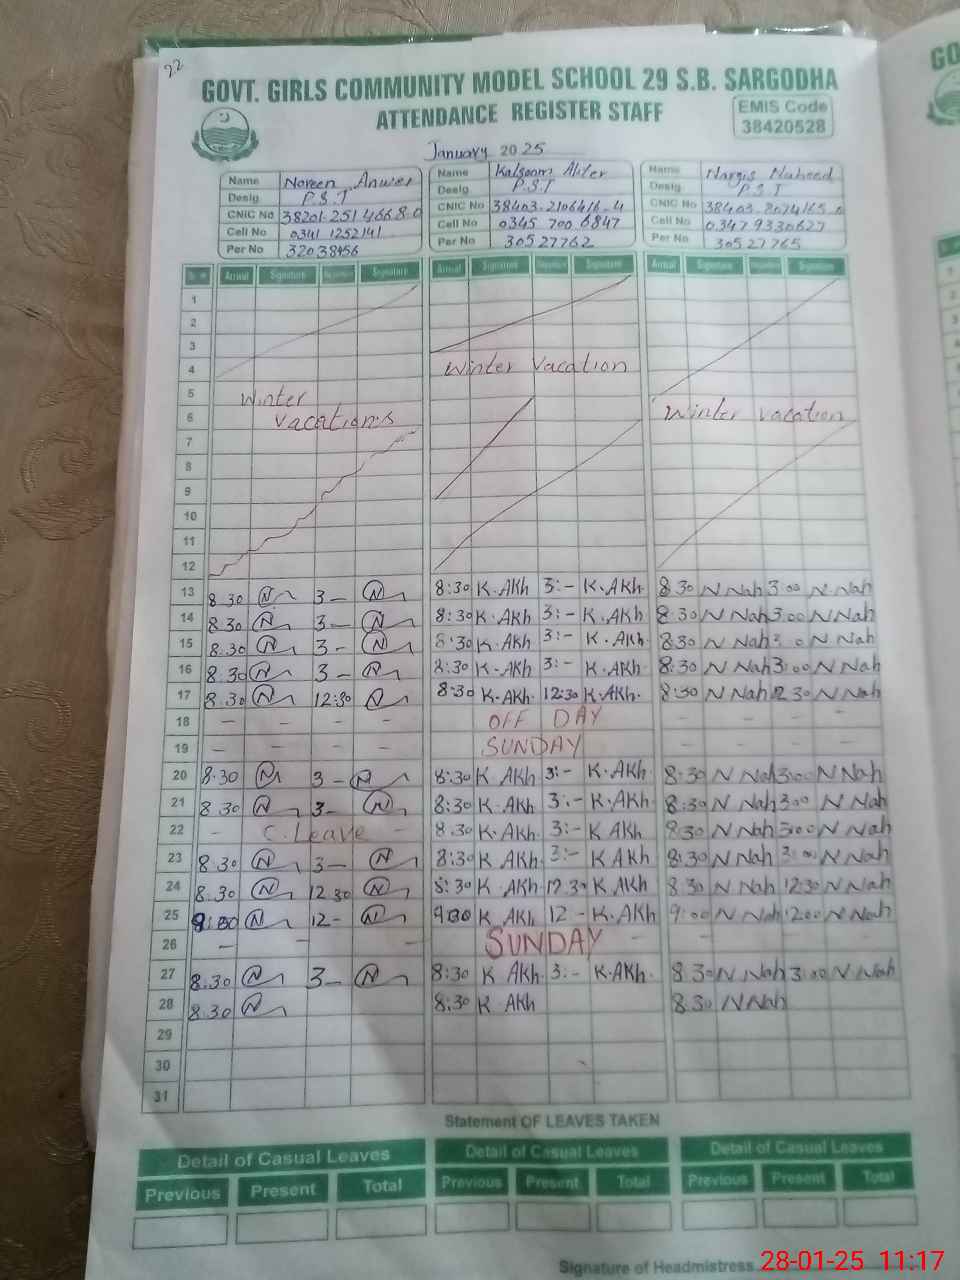 22
GOVT. GIRLS COMMUNITY MODEL SCHOOL 29 S.B. SARGODHA
ATTENDANCE REGISTER STAFF
EMIS Code
38420528
January 2025
Name Noreen Anwer
Desig P.S.T
CNIC No 38201.251 4668.0
Cell No 0341 1252141
Per No 32038456
Name Kalsoom Akter
Desig P.S.T
CNIC No 38403-2106416-4
Cell No 0345 700 6847
Per No 30527762
Name Nargis Naheed
Desig P.S.T
CNIC No
Cell No 0347 9330627
Per No 30527765
Arrival Signature Signature Arrival Signature Signature Arrival Signature Signature
1
2
3
4 Winter Vacation
5 Winter
6 Vacations Winter Vacation
7
8
9
10
11
12
13 8.30 N 3- N 8:30 K.AKh 3:- K.AKh. 8:30 N Nah 3:00 N.Nah
14 8.30 N 3- N 8:30 K.AKh 3:- K.AKh. 8:30 N Nah 3:00 N Nah
15 8.30 N 3- N 8:30 K.AKh 3:- K.AKh. 8:30 N Nah N Nah
16 8.30 N 3- N 8:30 K.AKh 3:- K.AKh. 8:30 N Nah 3:00 N Nah
17 8.30 N 12:30 N 8:30 K.AKh. 12:30 K.AKh. 8:30 N Nah 12 30 N Nah
18 - - - - OFF DAY - - - -
19 - - - - SUNDAY - - - -
20 8.30 N 3- N 8:30 K AKh 3:- K.AKh. 8:30 N Nah 3:00 N Nah
21 8.30 N 3- N 8:30 K AKh 3:- K.AKh. 8:30 N Nah 3:00 N Nah
22 - C.Leave - 8.30 K AKh. 3:- K AKh 8:30 N Nah 3:00 N Nah
23 8.30 N 3- N 8:30 K AKh. 3:- K AKh 8:30 N Nah 3:00 N Nah
24 8.30 N 12.30 N 8:30 K AKh 12.30 K AKh 8.30 N Nah 12:30 N Nah
25 N 12- N 9:00 K AKh 12- K.AKh 9:00 N Nah 12:00 N Nah
26 - - - SUNDAY - - -
27 8.30 N 3- N 8:30 K AKh. 3:- K.AKh. 8.30 N Nah 3:00 N Nah
28 8.30 N 8:30 K AKh 8.30 N Nah
29
30
31
Statement OF LEAVES TAKEN
Detail of Casual Leaves Detail of Casual Leaves Detail of Casual Leaves
Previous Present Total Previous Present Total Previous Present Total
Signature of Headmistress
28-01-25 11:17